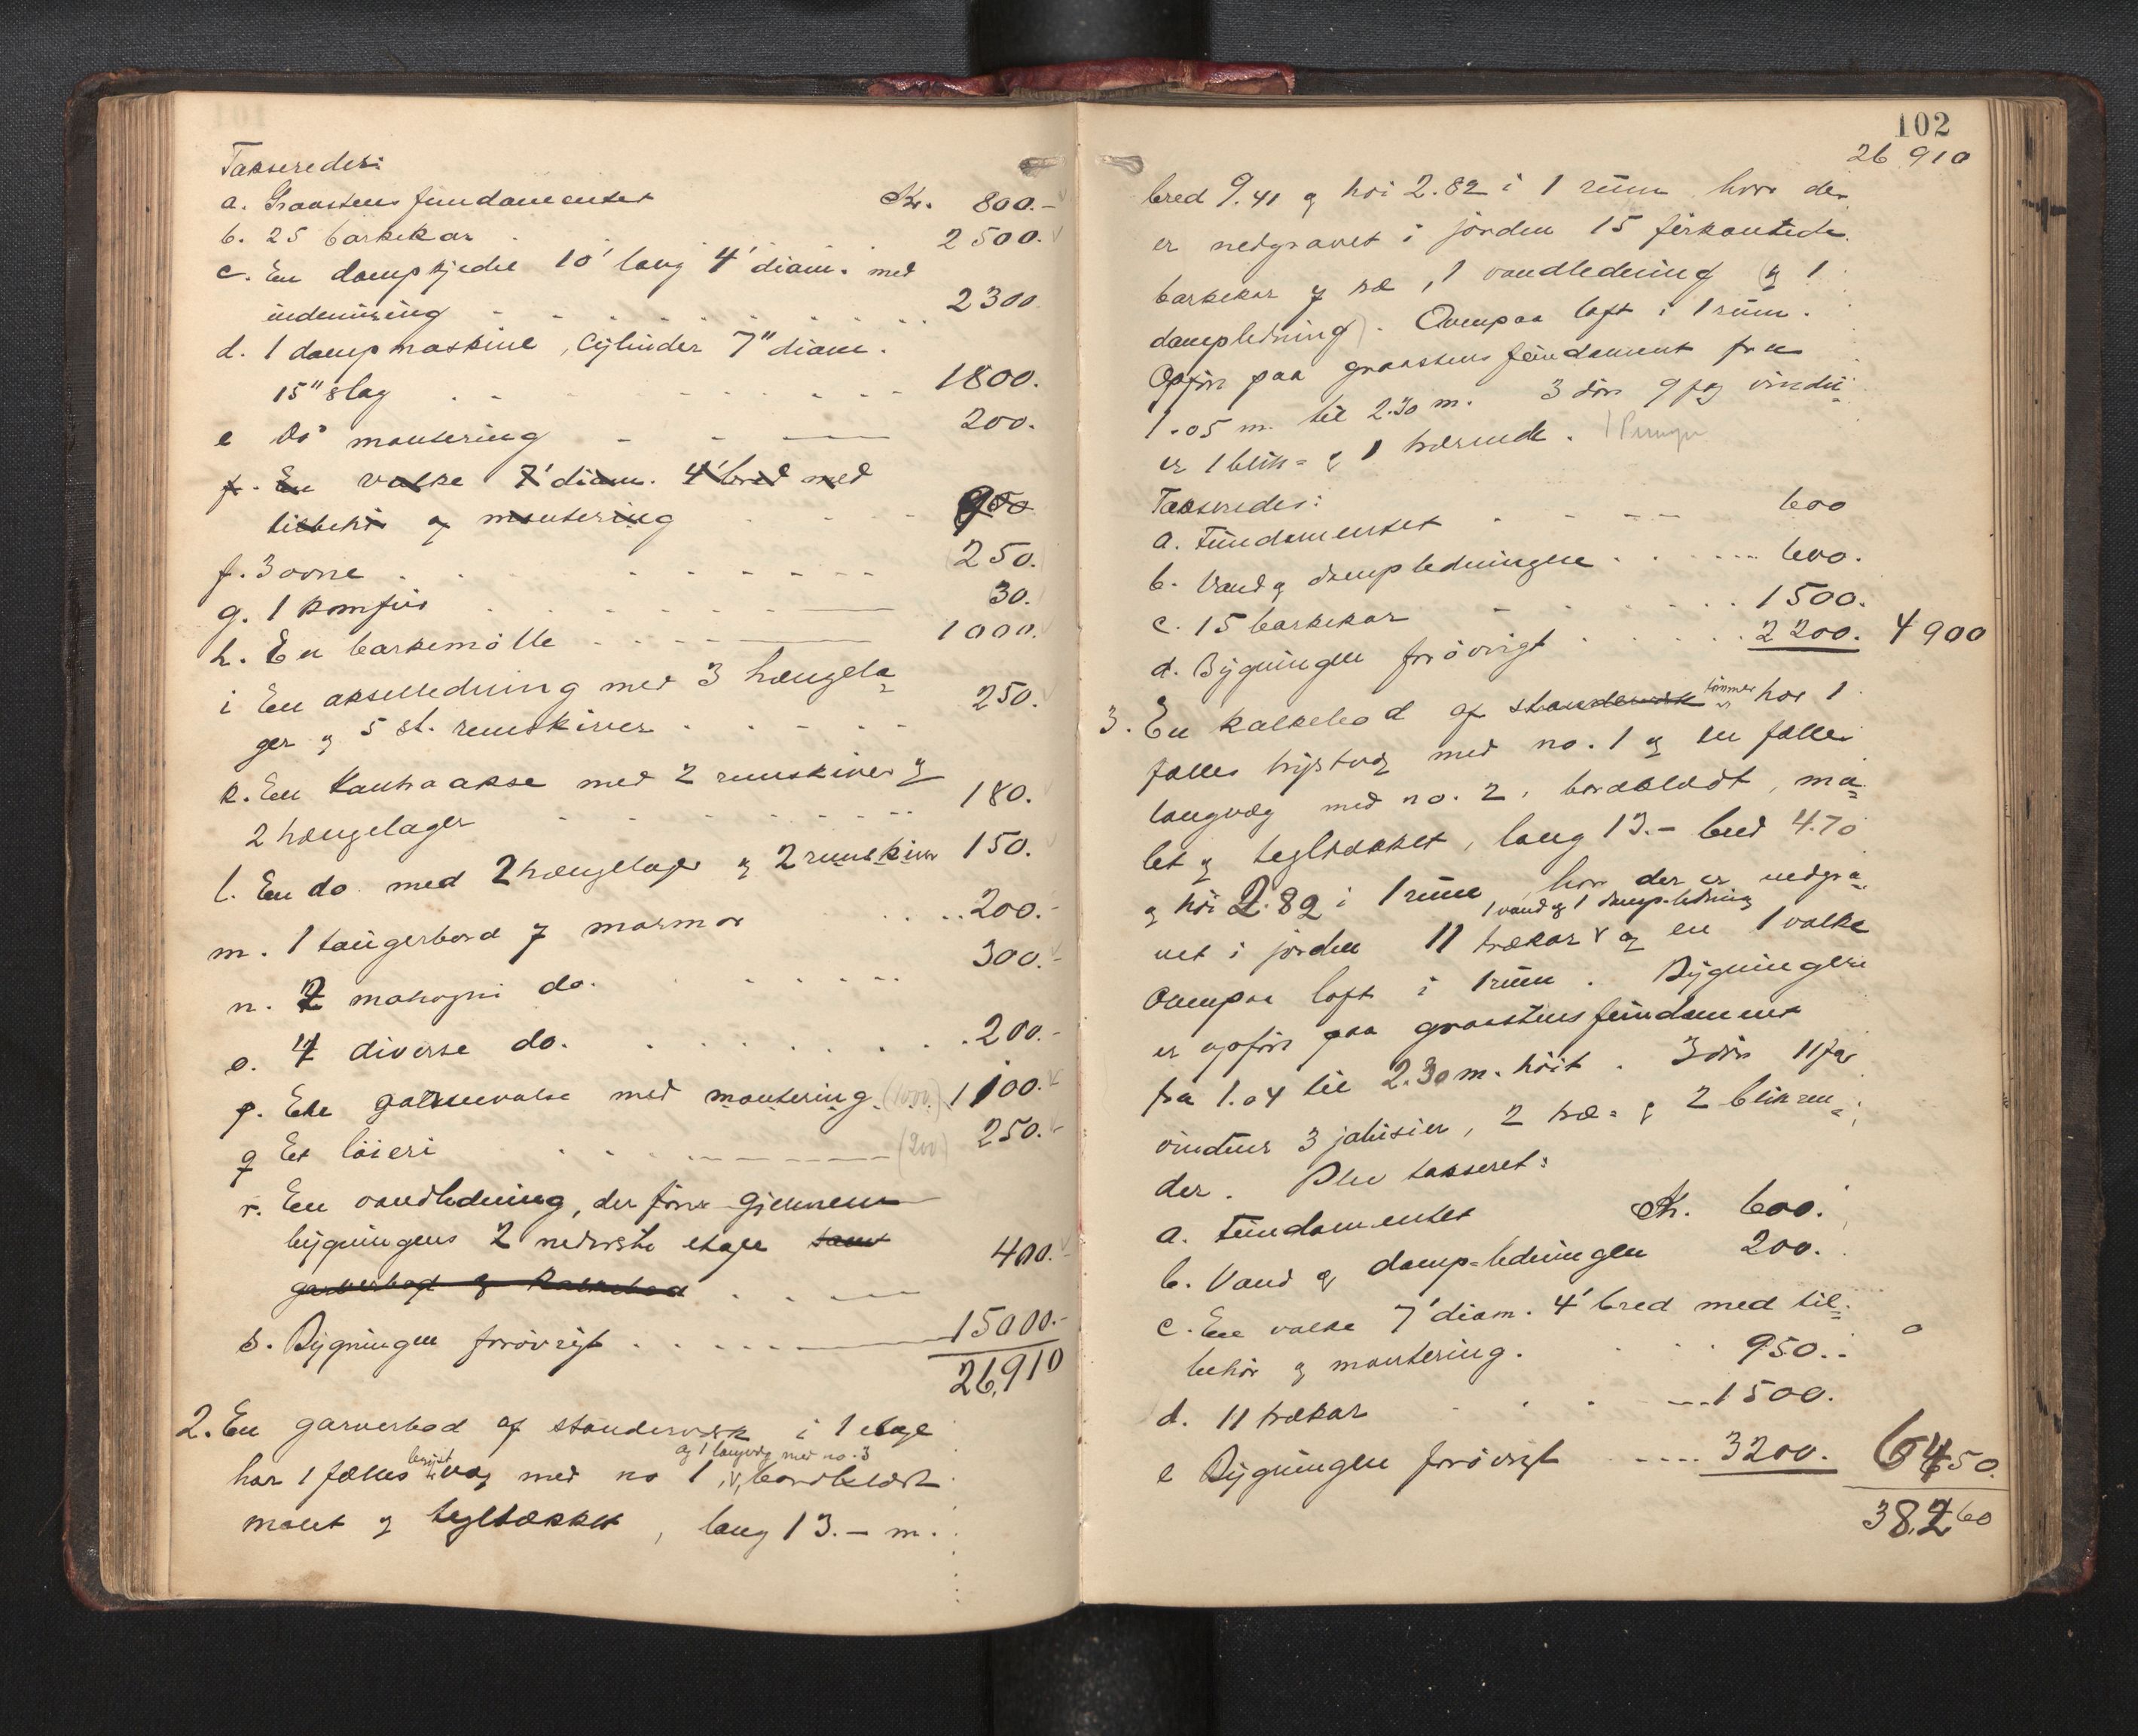 Taxseredes:
a. Graastensfundamentet Kr. 800.-
b. 25 barkekar 2500.
c. En dampkjedel 10' lang 4' diam. med
indmuring 2300
d. 1 dampmaskine, Cylinder 7" diam.
15" slag 1800.
e Do montering 200.
f. En valke 7' diam. 4' bred med
tilbehør og montering 950
f. 3 ovne 250.
g. 1 komfur 30.
h. En barkemølle 1000.
i En akselledning med 3 hængela-
ger og 5 st. remskiver 250.
k. En akse med 2 remskiver og
2 hængelager 180.
l. En do. med 2 hængelager og 2 remskiver 150.
m. 1 bord af marmor 200.-
n. 2 mahogni do. 300.-
o. 4 diverse do. 200.-
p. En valse med montering (1000) 1100.
q Et løieri (200) 250.
r. En vandledning, der fører gjennem
bygningens 2 nederste etage samt 400.-
garverbod og kalkebod
s. Bygningen forøvrigt 15000.-
26,910
2. En garverbod af standerverk i 1 etage
og 1 langvæg med no. 3
har 1 fælles væg med no 1, bordklædt
malet og tegltækket, lang 13.- m.
102
26 910
bred 9.41 og høi 2.82 i 1 rum hvor der
er nedgravet i jorden 15 firkantede
barkekar af træ, 1 vandledning (og 1
dampledning). Ovenpaa loft i 1 rum.
Opført paa graastensfundament fra
1.05 m. til 2.30 m. 3 dør 9 fag vindu-
er 1 blik- & 1 trærende.
Taxseredes:
a. Fundamentet 600
b. Vand og dampledningen 600.
c. 15 barkekar 1500.
d. Bygningen forøvrigt 2200. 4900
3. En kalkebod af standerverk tømmer har 1
fælles væg med no. 1 og en fælles
langvæg med no. 2, bordklædt, ma-
let og tegltækket, lang 13.- bred 4.70
og høi 2.82 i 1 rum, hvor der er nedgra-
1 vand og 1 damp-ledning
vet i jorden 11 trækar og en 1 valke
Ovenpaa loft i 1 rum. Bygningen
er opført paa graastensfundament
fra 1.04 til 2.30 m. høit. 3 dør 11 fag
vinduer 3 jalusier, 2 træ- & 2 blikren-
der. Blev taxseret:
a. Fundamentet Kr. 600.
b. Vand og damp-ledningen 200.
c. En valke 7' diam. 4' bred med til-
behør og montering. 950.
d. 11 trækar 1500.
e Bygningen forøvrigt 3200. 6450.
38,260